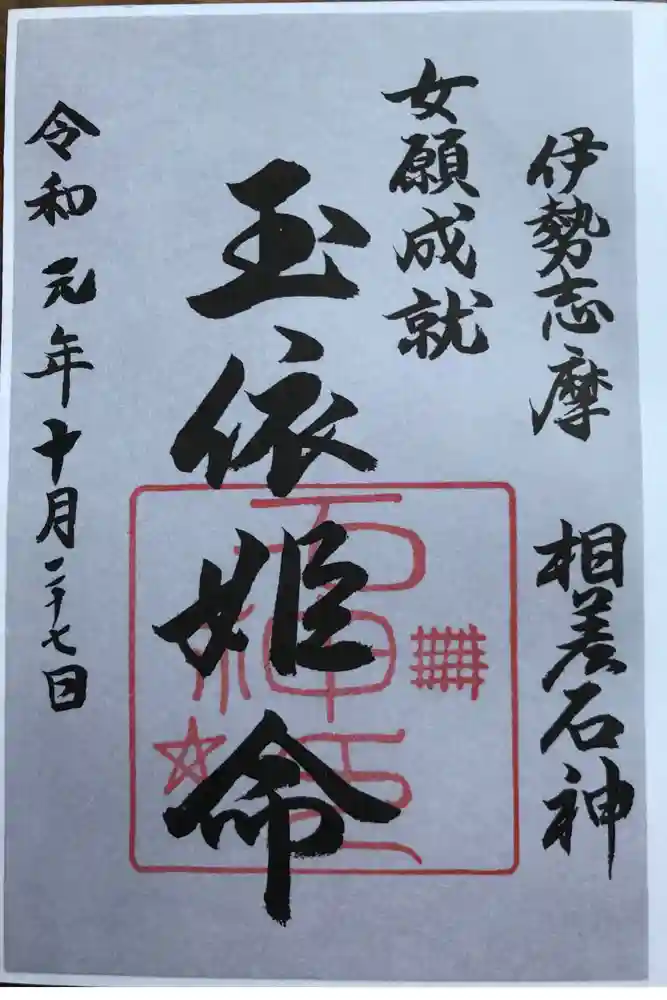 伊勢志摩 相差石神
女願成就
玉依姫命
石神印
令和元年十月二十七日